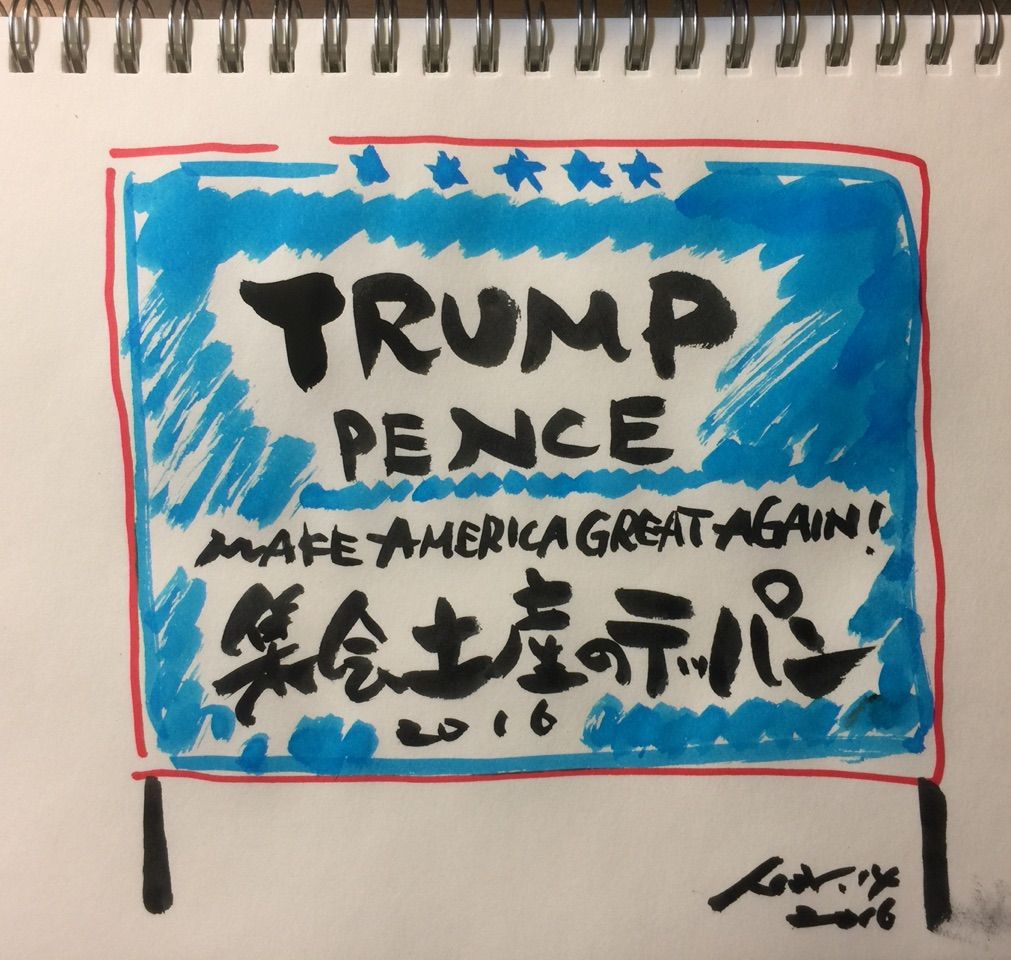 TRUMP
PENCE
MAKE AMERICA GREAT AGAIN!
集会土産のテッパン
2016
2016